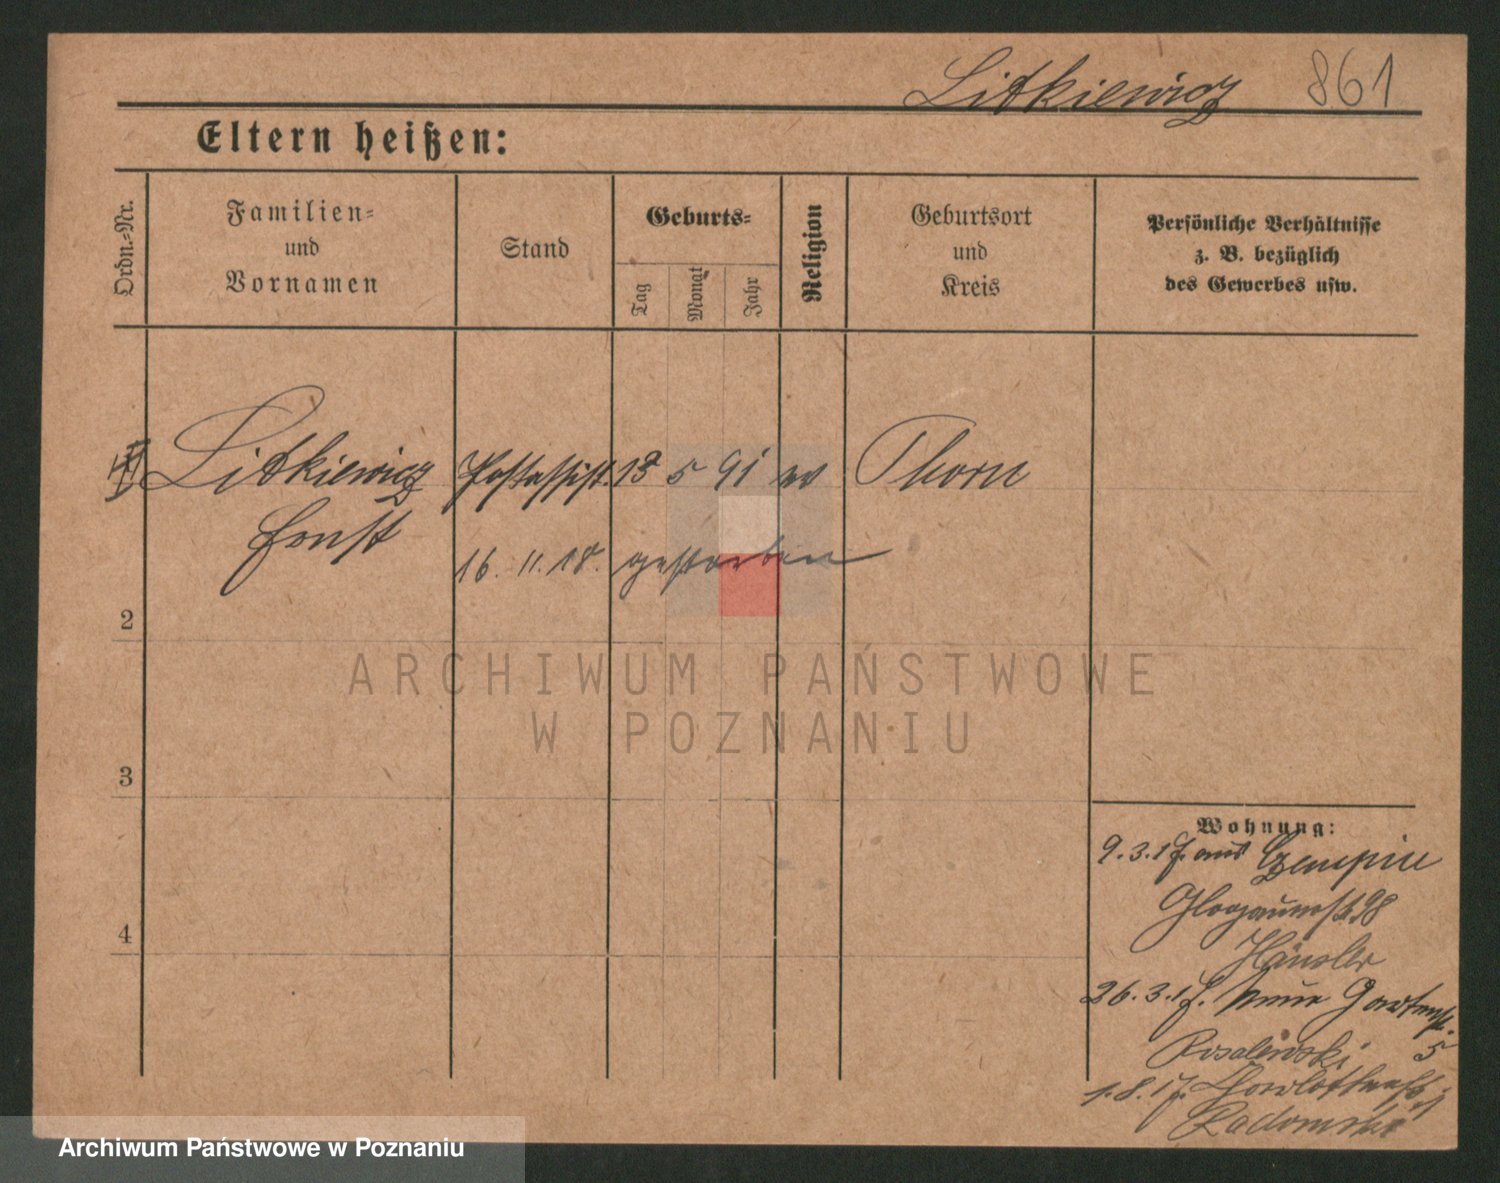 Litkiewicz 861
Eltern heißen:
Ordn.-Nr.
Familien-
und
Vornamen
Stand
Geburts-
Tag
Monat
Jahr
Religion
Geburtsort
und
Kreis
Persönliche Verhältnisse
z. B. bezüglich
des Gewerbes usw.
Litkiewicz Postassist. 13 5 91 ev Thorn
Ernst
16. 11. 18. gestorben
2
3
4
ARCHIWUM PAŃSTWOWE
W POZNANIU
Wohnung:
9. 3. 17. aus Czempin
Glogauerstr. 98
Händler
26. 3. 17. Neue Gartenstr.
5
Rosalewski
1. 8. 17.
Radomski
Archiwum Państwowe w Poznaniu